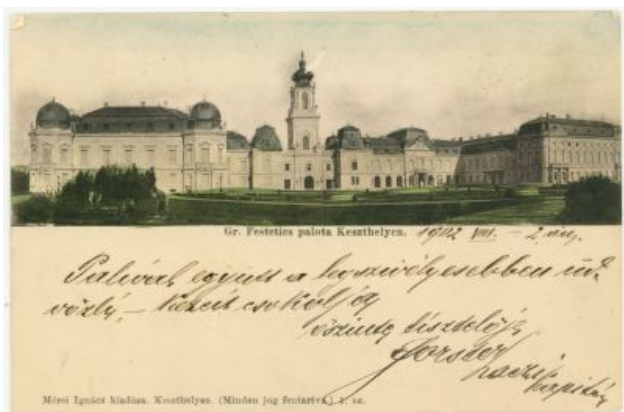 Gr. Festetics palota Keszthelyen. 1902 VIII. – 2.
Palival együtt a legszivélyesebben üd-
vözli, – kezeit csokolja
őszinte tisztelője
Laczi
kapitány
Mérei Ignácz kiadása. Keszthelyen. (Minden jog fentartva.) 1. sz.